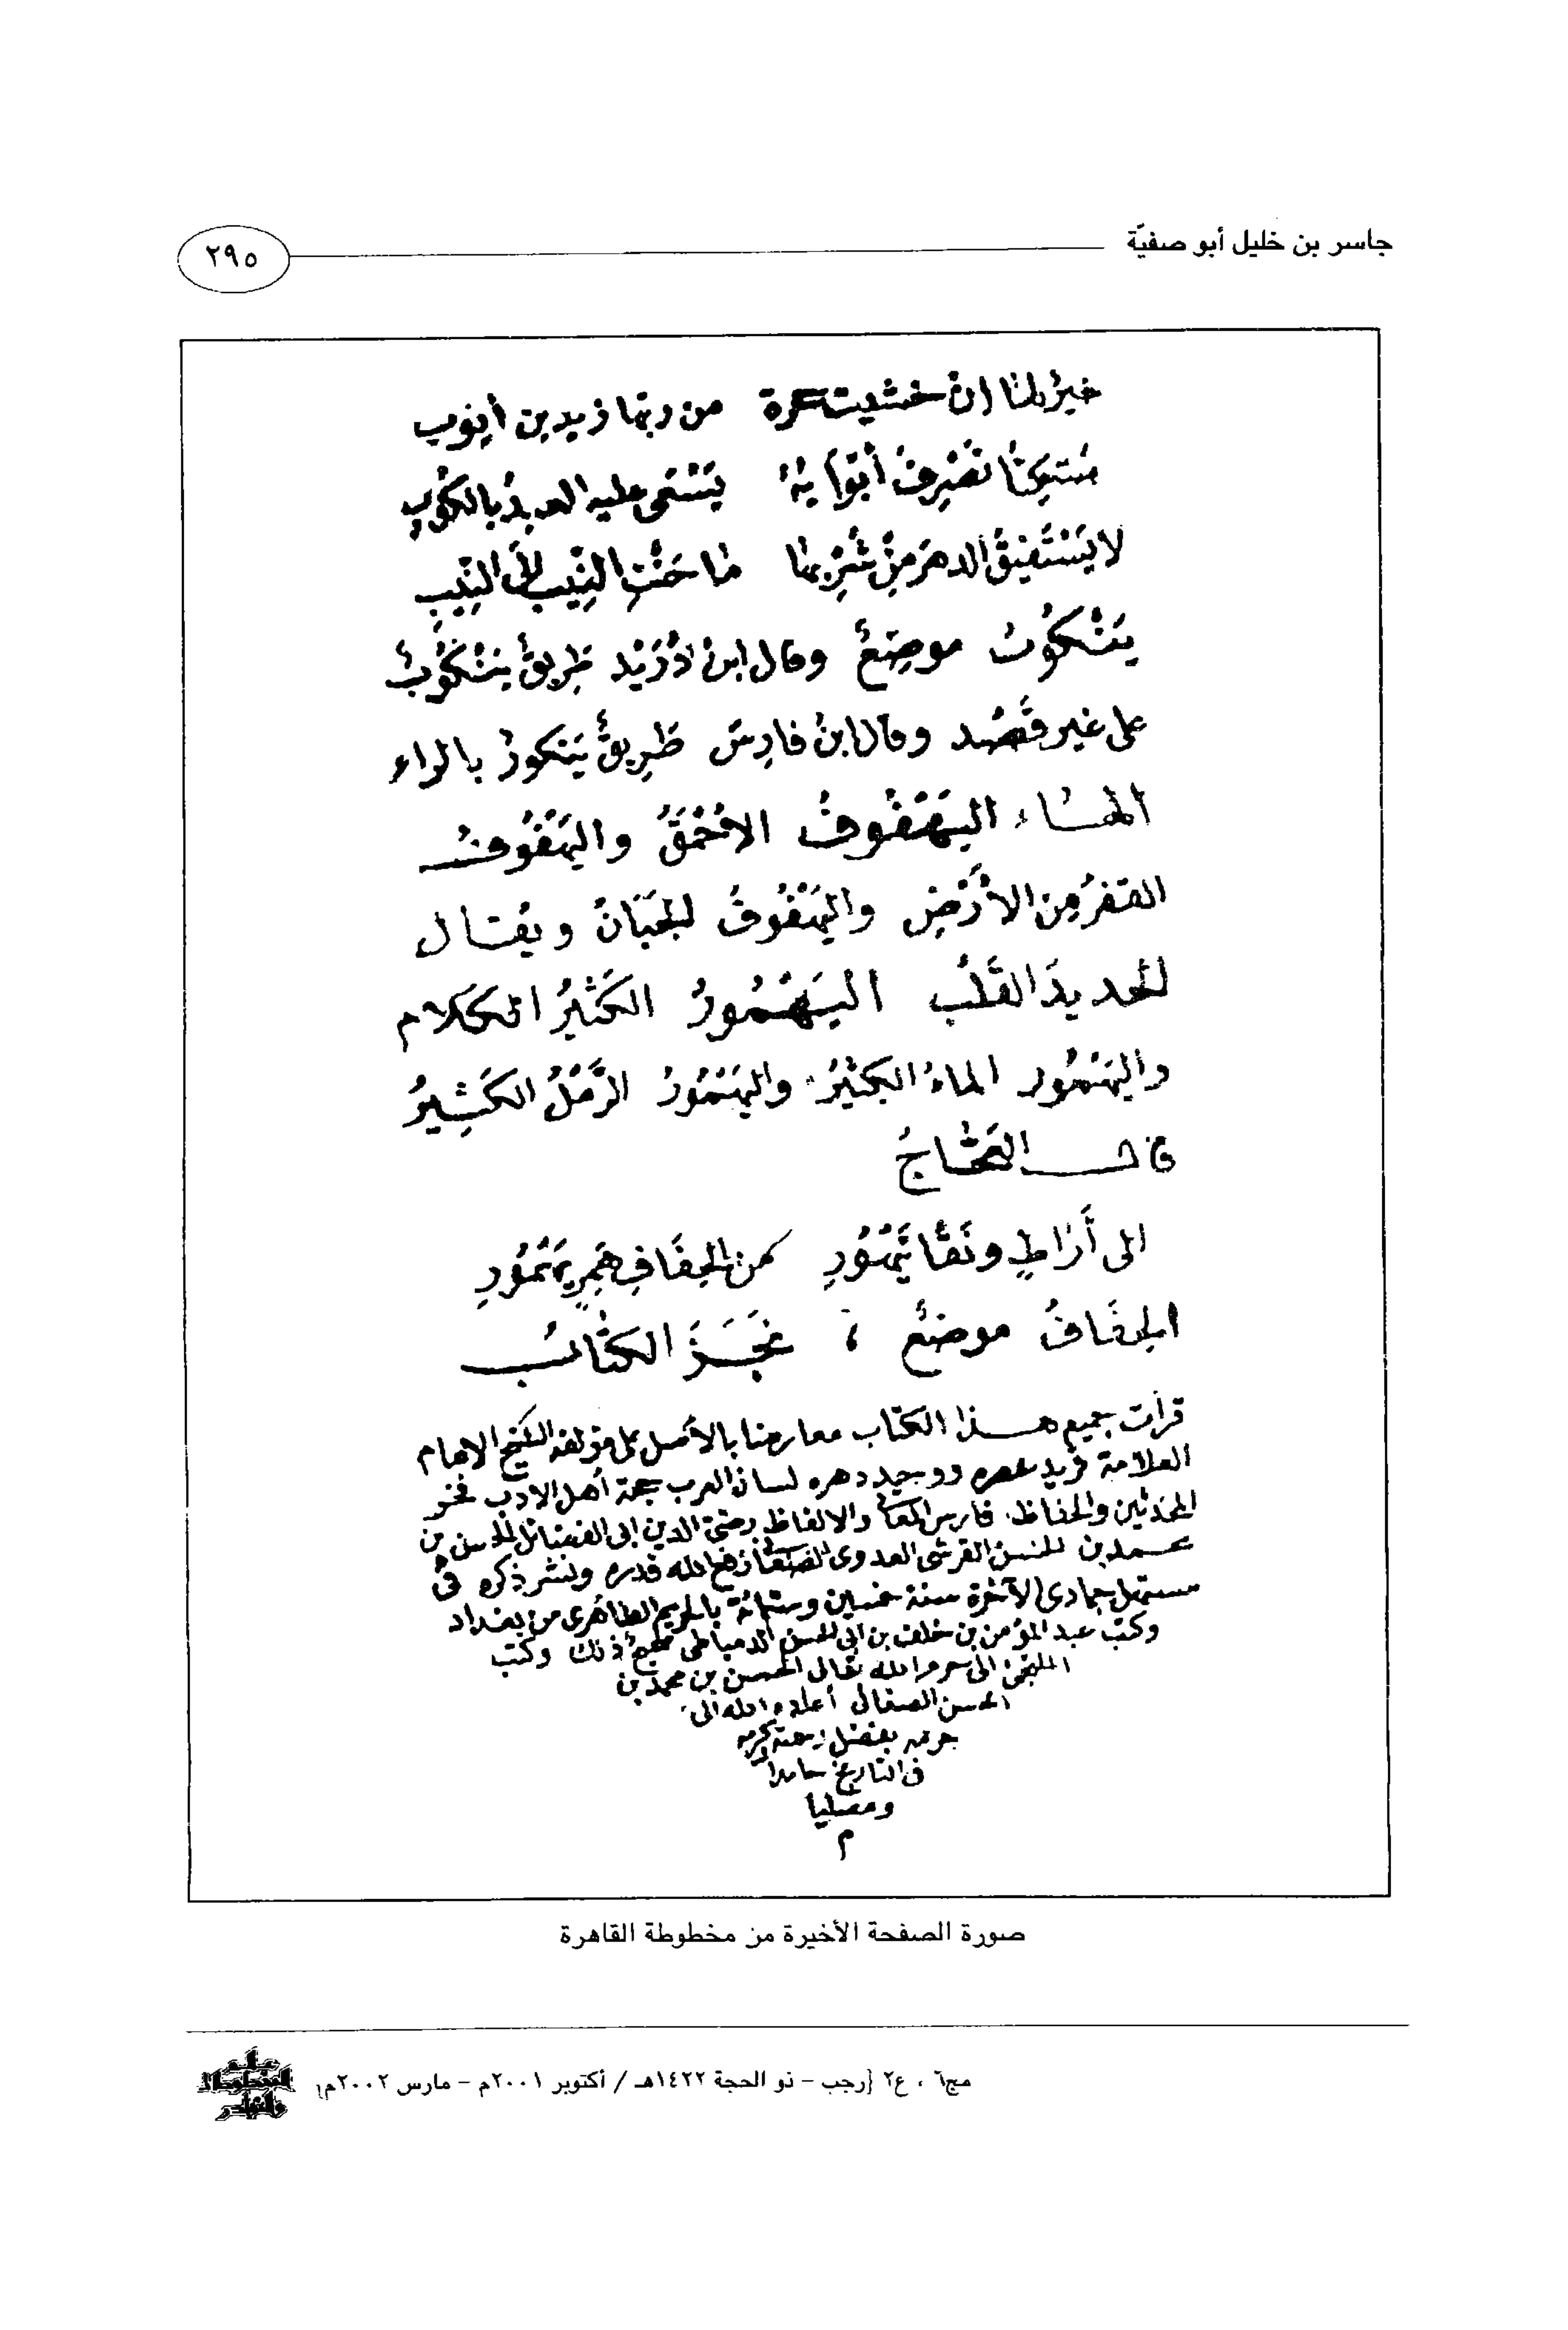 جاسر بن خليل أبو صفيّة
٢٩٥
خيرٌ لنا إن خشيت عرة من ربها زيد بن أيوب
مُتكئًا تُصْرفُ أبوابُه يَسْعى عليه العبدُ بالكُوبِ
لا يَسْتَفيقُ الدهرَ مِنْ شُرْبِها ما حَنَّتِ النِّيبُ إلى النِّيبِ
يَنْكُوبُ موضِعٌ وقال ابنُ دُرَيْد طَرِيقٌ يَنْكُوبٌ
على غير قَصْد وقال ابنُ فارِس طَرِيقٌ يَنكورٌ بالراء
الهاء اليَهْفُوفُ الأحْمَقُ واليَهْفُوفُ
القفرُ مِن الأرْضِ واليَهْفُوفُ الجَبَانُ ويقال
الحديدَ القَلْب اليَهْمُورُ الكَثيرُ الكلام
واليَهْمُور الماءُ الكثيرُ واليَهْمُورُ الرَّمْلُ الكَثِيرُ
قال العَجَّاجُ
الى أَرَاطٍ ونَقًا تَيْهُورِ من الحِقَافِ هَمِرٍ يَهْمُورِ
الحِقَافُ موضعٌ ؛ نَجَزَ الكتابُ
قرأت جميع هذا الكتاب معارضا بالأصل على مؤلفه الشيخ الامام
العلامة فريد عصره ووحيد دهره لسان العرب حجة أهل الادب فخر
المحدثين والحفاظ فارس المعاني والالفاظ رضيّ الدين ابى الفضائل الحسن بن
محمد بن الحسن القرشى العدوى الصغانى رفع الله قدره ونشر ذكره فى
مستهل جمادى الآخرة سنة خمسين وستمائة بالحريم الطاهرى من بغداد
وكتب عبد المؤمن بن خلف بن ابى الحسن الدمياطى صحيح ذلك وكتب
الملتجئ الى حرم الله تعالى الحسن بن محمد بن
الحسن الصغانى أعاده الله الى
حرمه بفضل رحمته وكرمه
فى التاريخ حامدا
ومصليا
م
صورة الصفحة الأخيرة من مخطوطة القاهرة
مج٦ ، ع٢ {رجب - ذو الحجة ١٤٢٢هـ / أكتوبر ٢٠٠١م - مارس ٢٠٠٢م}
عالم
المخطوطات
والنوادر